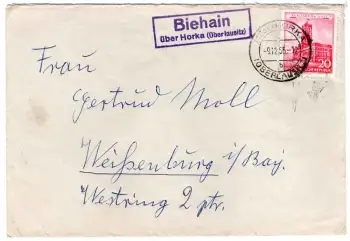 Biehain
über Horka (Oberlausitz)
HORKA
(OBERLAUSITZ)
20
Frau
Gertrud Moll
Weißenburg i/Bay.
Westring 2 ptr.